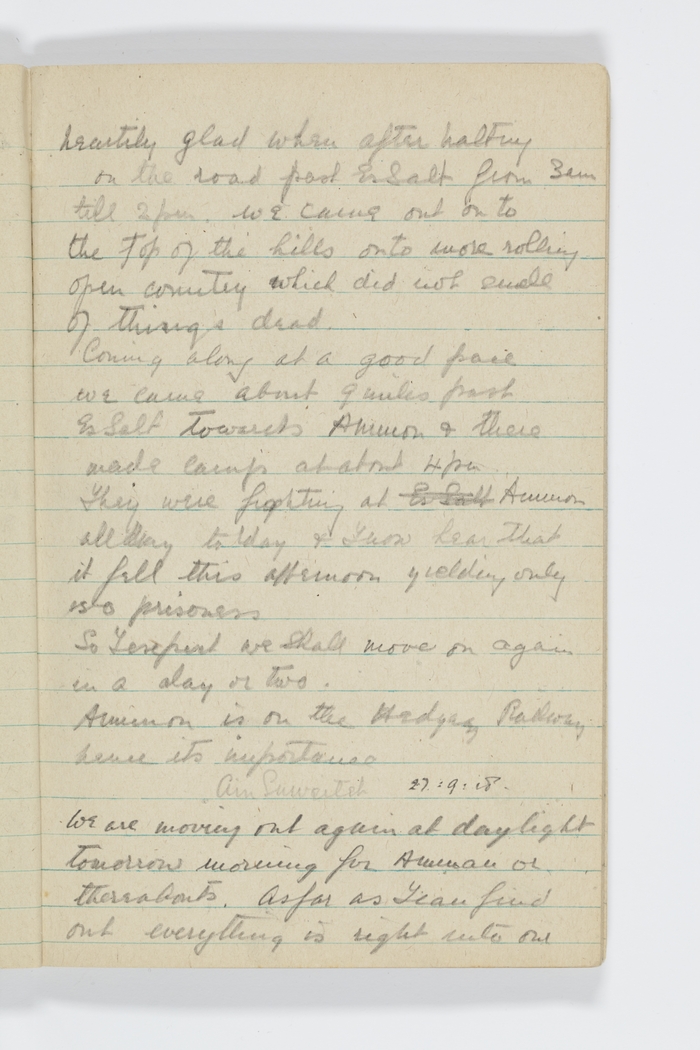 heartily glad when after halting
on the road past Es Salt from 3am
till 2pm. we came out on to
the top of the hills onto more rolling
open country which did not smell
of things dead.
Coming along at a good pace
we came about 9 miles past
Es Salt towards Ammon & there
made camp at about 4pm.
They were fighting at Es Salt Ammon
all day to day & I now hear that
it fell this afternoon yielding only
prisoners
So I expect we shall move on again
in a day or two.
Ammon is on the Hedgaz Railway
hence its importance
Ain 27:9:18.
We are moving out again at daylight
tomorrow morning for Amman or
thereabouts. As far as I can find
out everything is right into our